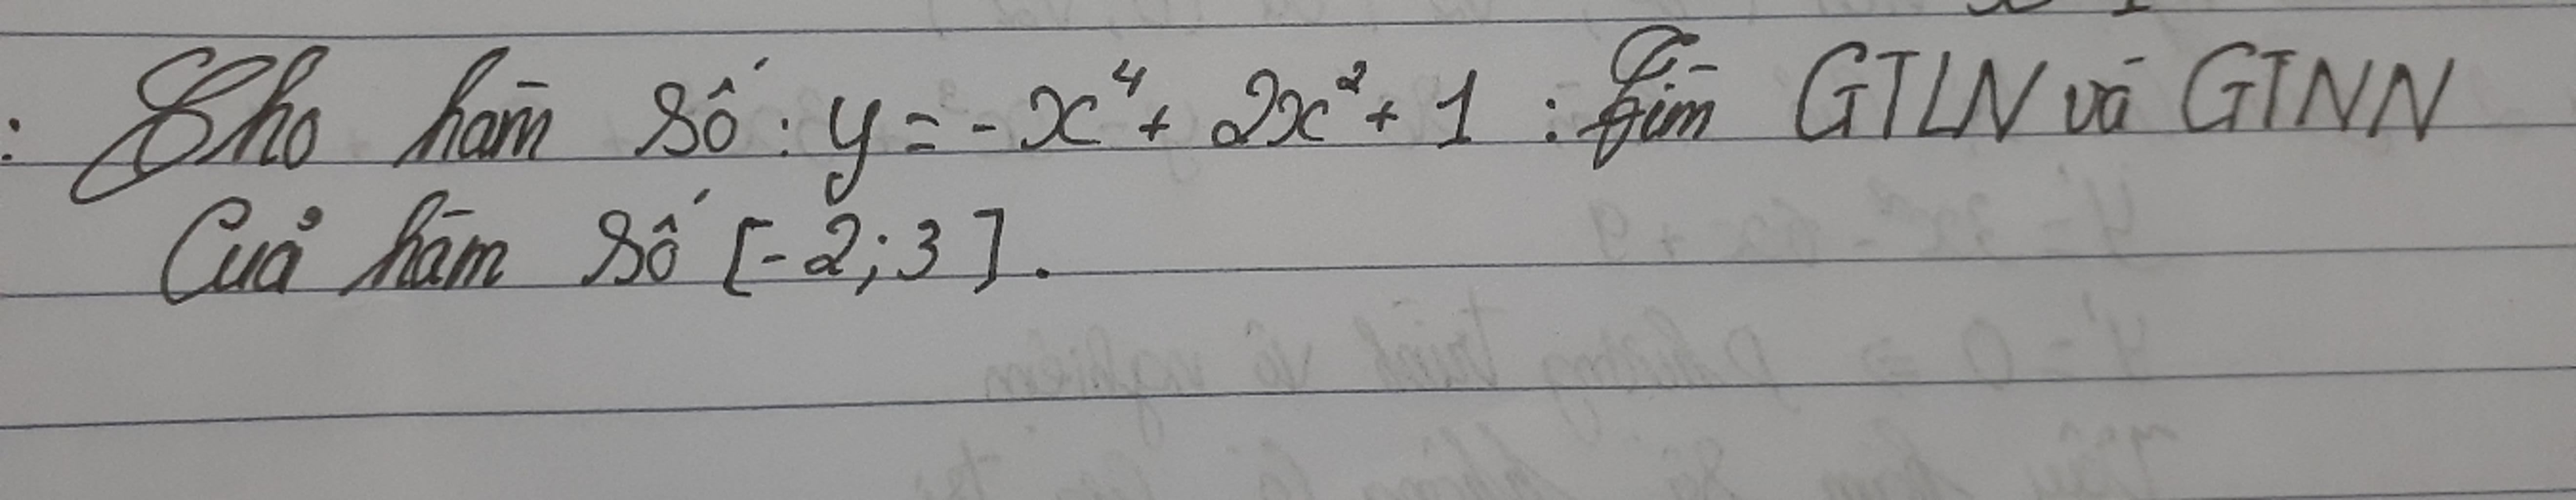 : Cho hàm số: y = -x⁴ + 2x² + 1 : Tìm GTLN và GTNN
Của hàm số [-2; 3].